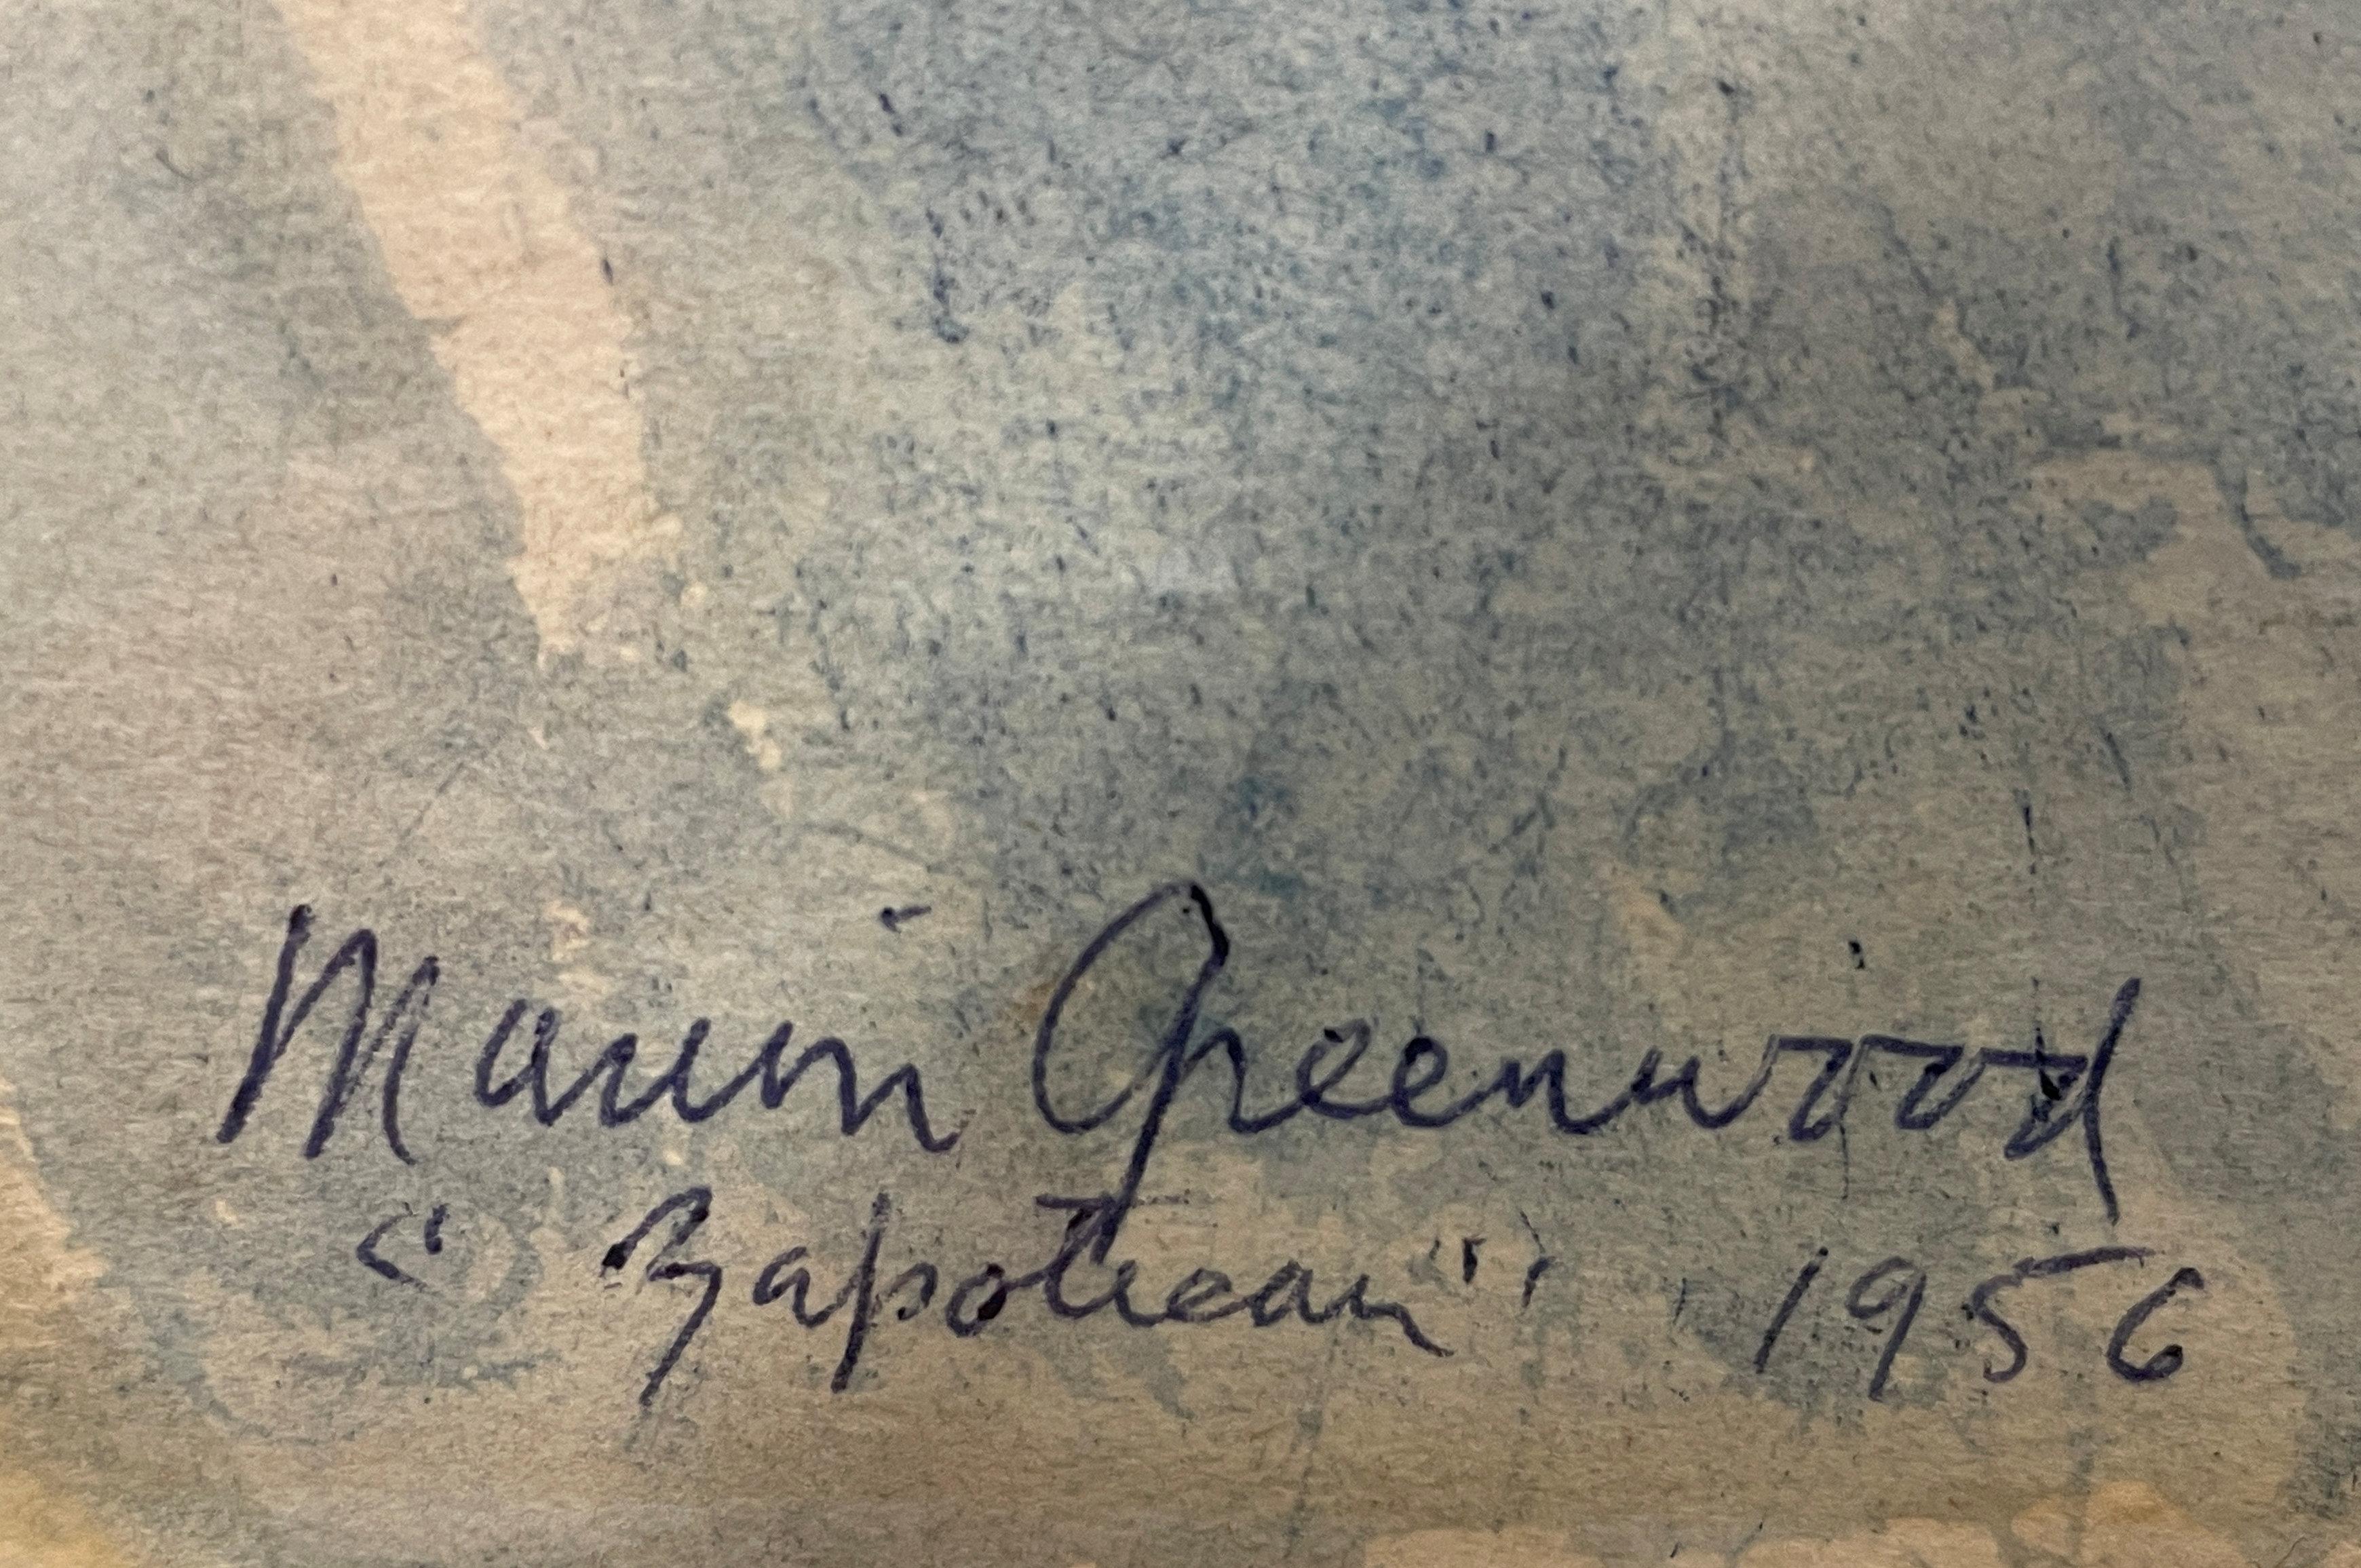 Marion Greenwood
"Zapotecan" 1956